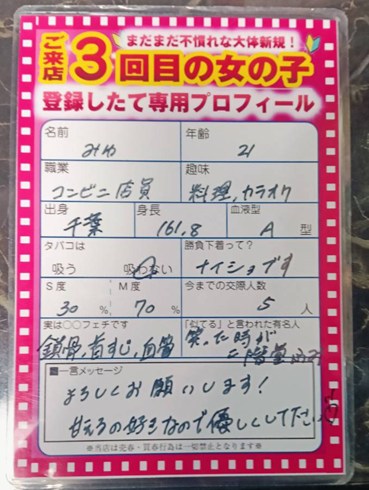 まだまだ不慣れな大体新規！
ご来店3回目の女の子
登録したて専用プロフィール
名前 みゆ 年齢 21
職業 コンビニ店員 趣味 料理,カラオケ
出身 千葉 身長 161.8 血液型 A 型
タバコは 吸う 吸わない 勝負下着って？ ナイショです
S度 30 % M度 70 % 今までの交際人数 5 人
実は〇〇フェチです 鎖骨,首すじ,血管 「似てる」と言われた有名人 笑った時が二階堂ふみ
■一言メッセージ
よろしくお願いします！
甘えるの好きなので優しくしてください
※当店は売春・買春行為は一切禁止となります※